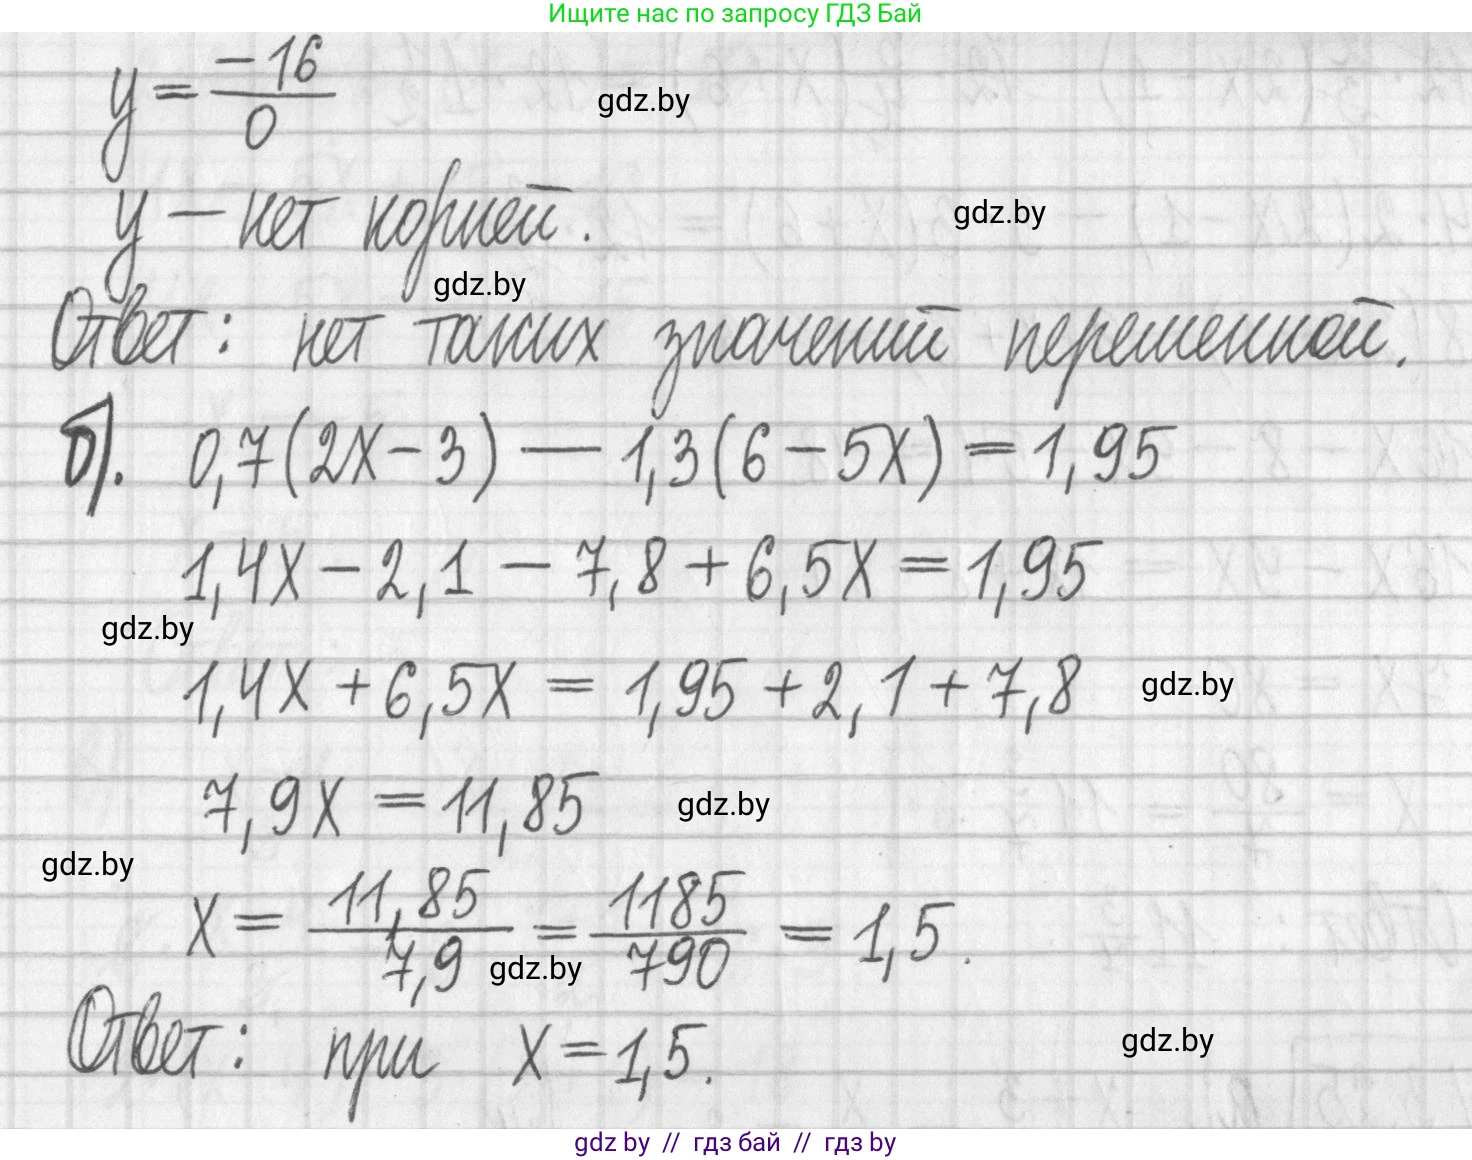 Ищите нас по запросу ГДЗ Бай
y = -16/0
gdz.by
y – нет корней.
gdz.by
gdz.by
Ответ: нет таких значений переменной.
б). 0,7(2x - 3) - 1,3(6 - 5x) = 1,95
1,4x - 2,1 - 7,8 + 6,5x = 1,95
gdz.by
1,4x + 6,5x = 1,95 + 2,1 + 7,8
gdz.by
7,9x = 11,85
gdz.by
gdz.by
x = 11,85/7,9 = 1185/790 = 1,5.
gdz.by
Ответ: при x = 1,5.
gdz.by
gdz by // гдз бай // гдз by